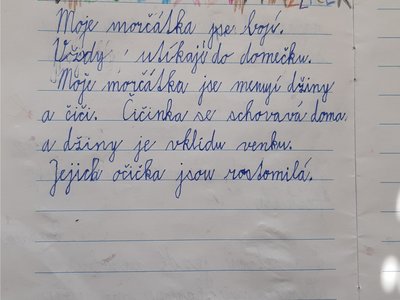 Moje morčátka jse bojí.
Vždy utíkají do domečku.
Moje morčátka jse menují džiny
a čiči. Čičinka se schovavá doma
a džiny je vklidu venku.
Jejich očička jsou rostomilá.